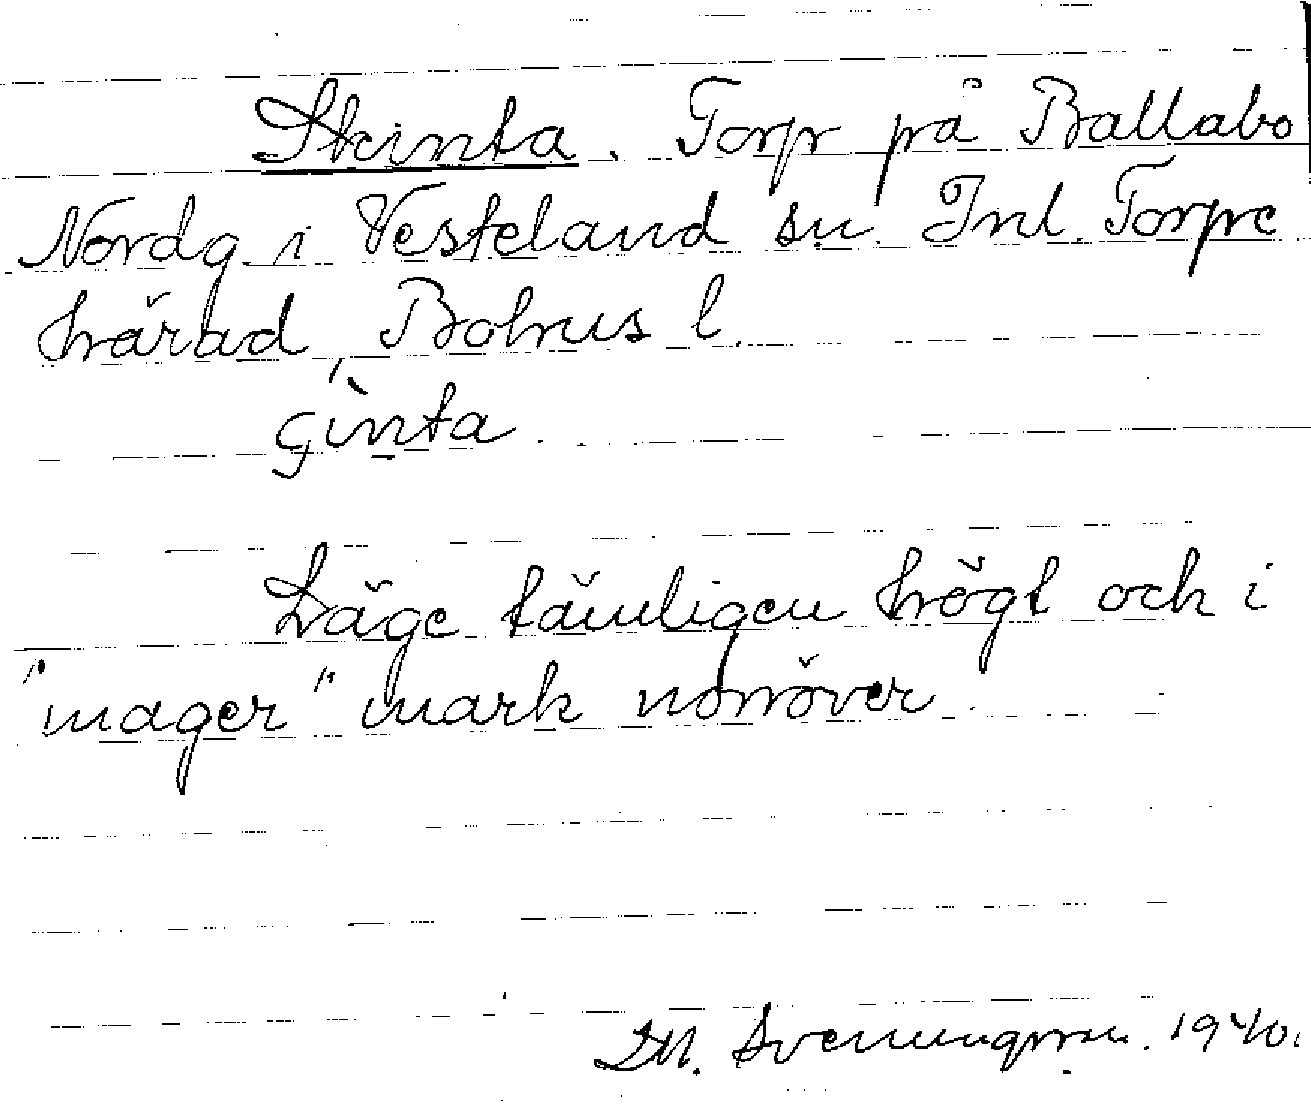 Skinta. Torp på Ballabo
Nordg. i Vesteland sn. Inl. Torpe
härad, Bohus l.
Läge tämligen högt och i
"mager" mark norröver.
M. Svenungsson. 1940.